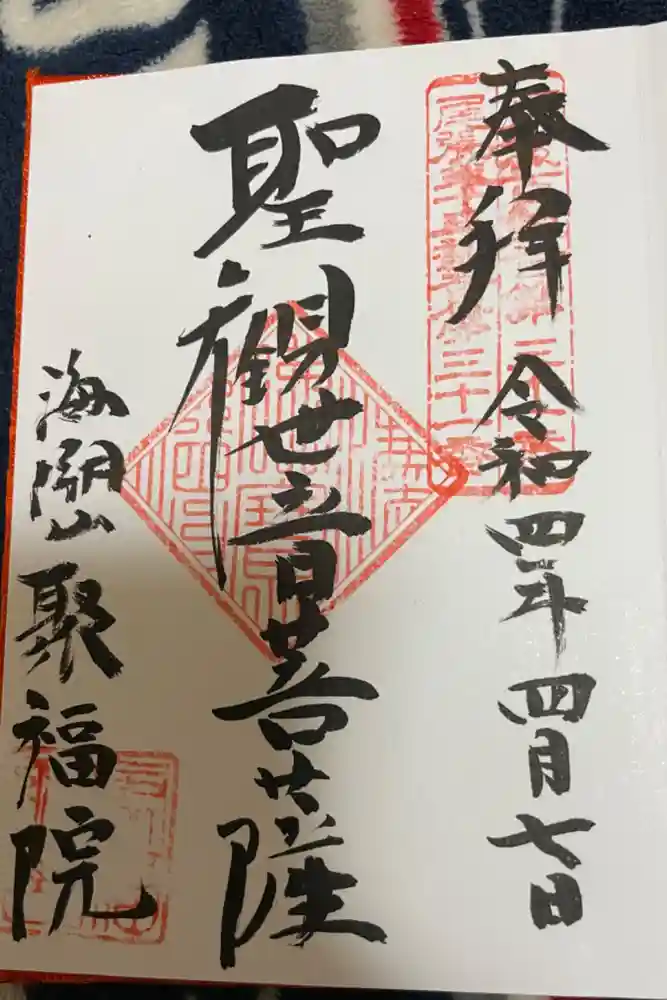 奉拝
令和四年四月七日
聖観世音菩薩
海潮山
聚福院